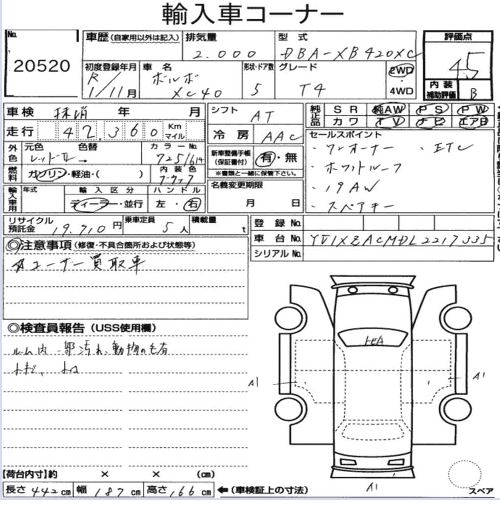 輸入車コーナー
No. 20520
車歴 (自家用以外は記入)
排気量 2.000
型式 DBA-XB420XC
評価点 4.5
初度登録年月 R 1/11月
車名 ボルボ XC40
形状・ドア数 5
グレード T4
2WD・4WD
内装補助評価 B
車検 抹消 年 月
シフト AT
純正品 SR 純AW PS PW
カワ TV ナビ エアB
走行 42,360 Km マイル
冷房 AAC
セールスポイント
・ワンオーナー ・ETC
・ホワイトルーフ
・19AW
・スペアキー
外色 元色 色替 カラーNo.
レッドII→ 725/614
燃料 ガソリン・軽油・( )
内装色 ブラック
新車整備手帳(保証書付) 有・無
※書類と一緒に保管下さい。
名義変更期限
月 日
輸入車 年式 輸入区分 ハンドル
ディーラー・並行 左・右
リサイクル預託金 19,710円
乗車定員 5人
積載量 t
登録No.
車台No. YV1XZACMDL2217335
シリアルNo.
◎注意事項 (修復・不具合箇所および状態等)
※コーナー買取車
◎検査員報告 (USS使用欄)
ルーム内 汚れ、動物の毛有
トビ、
トムA
A1
A1
A1
スペア
【荷台内寸】約 × × (cm)
長さ 442cm 幅 187cm 高さ 166cm ←(車検証上の寸法)